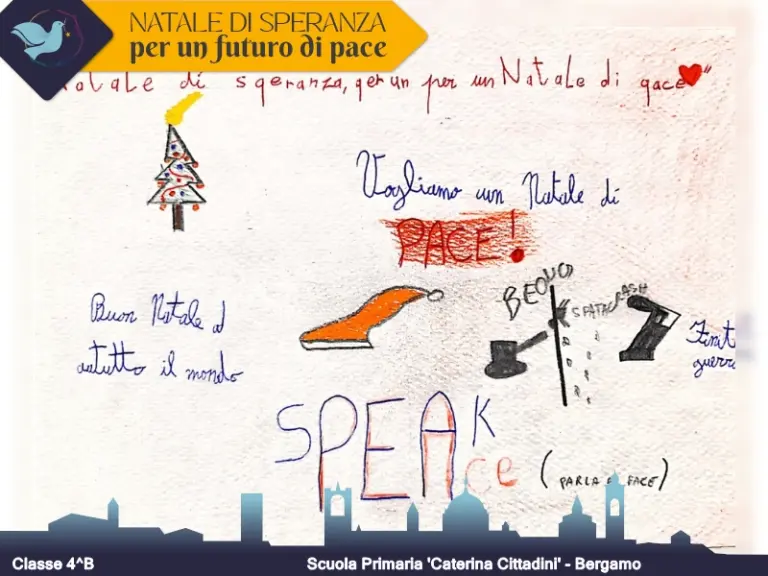 NATALE DI SPERANZA
per un futuro di pace
Natale di speranza, per un per un Natale di pace"
Vogliamo un Natale di
PACE!
Buon Natale a
tutto il mondo
BEOUCI
SPATACRASH
SPEAK
ce
(PARLA FACE)
Classe 4^B
Scuola Primaria 'Caterina Cittadini' - Bergamo